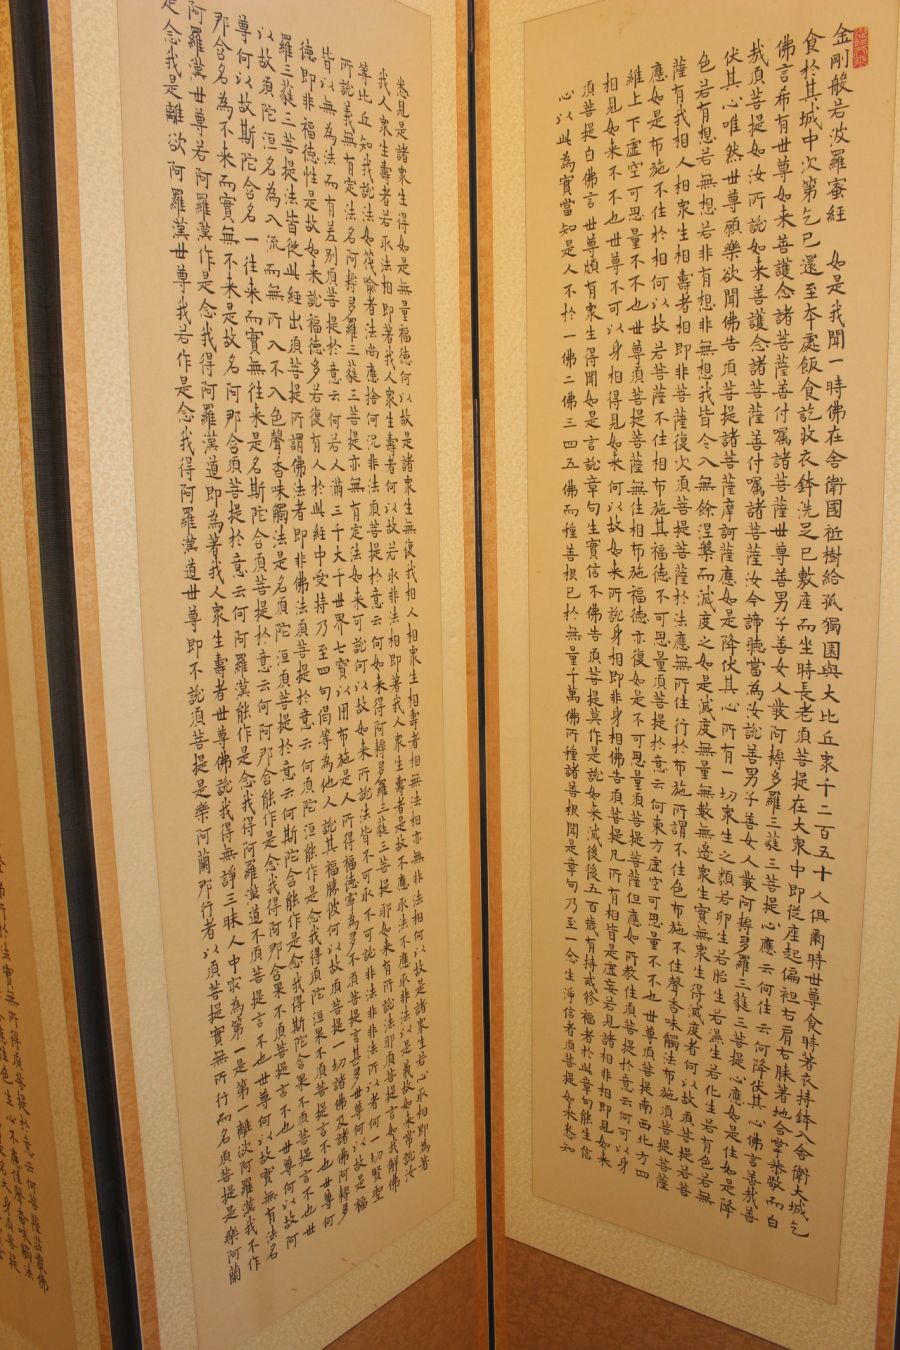 金剛般若波羅蜜経 如是我聞一時佛在舍衛國祇樹給孤獨園與大比丘衆千二百五十人俱爾時世尊食時著衣持鉢入舍衛大城乞
食於其城中次第乞已還至本處飯食訖收衣鉢洗足已敷座而坐時長老須菩提在大衆中即從座起偏袒右肩右膝著地合掌恭敬而白
佛言希有世尊如来善護念諸菩薩善付囑諸菩薩世尊善男子善女人發阿耨多羅三藐三菩提心應云何住云何降伏其心佛言善哉善
哉須菩提如汝所說如来善護念諸菩薩善付囑諸菩薩汝今諦聽當為汝說善男子善女人發阿耨多羅三藐三菩提心應如是住如是降
伏其心唯然世尊願樂欲聞佛告須菩提諸菩薩摩訶薩應如是降伏其心所有一切衆生之類若卵生若胎生若濕生若化生若有色若無
色若有想若無想若非有想非無想我皆令入無餘涅槃而滅度之如是滅度無量無數無邊衆生實無衆生得滅度者何以故須菩提若菩
薩有我相人相衆生相壽者相即非菩薩復次須菩提菩薩於法應無所住行於布施所謂不住色布施不住聲香味觸法布施須菩提菩薩
應如是布施不住於相何以故若菩薩不住相布施其福德不可思量須菩提於意云何東方虛空可思量不不也世尊須菩提南西北方四
維上下虛空可思量不不也世尊須菩提菩薩無住相布施福德亦復如是不可思量須菩提菩薩但應如所教住須菩提於意云何可以身
相見如来不不也世尊不可以身相得見如来何以故如来所說身相即非身相佛告須菩提凡所有相皆是虛妄若見諸相非相即見如来
須菩提白佛言世尊頗有衆生得聞如是言說章句生實信不佛告須菩提莫作是說如来滅後後五百歲有持戒修福者於此章句能生信
心以此為實當知是人不於一佛二佛三四五佛而種善根已於無量千萬佛所種諸善根聞是章句乃至一念生淨信者須菩提如来悉知
悉見是諸衆生得如是無量福德何以故是諸衆生無復我相人相衆生相壽者相無法相亦無非法相何以故是諸衆生若心取相即為著
我人衆生壽者若取法相即著我人衆生壽者何以故若取非法相即著我人衆生壽者是故不應取法不應取非法以是義故如来常說汝
等比丘知我說法如筏喻者法尚應捨何況非法須菩提於意云何如来得阿耨多羅三藐三菩提耶如来有所說法耶須菩提言如我解佛
所說義無有定法名阿耨多羅三藐三菩提亦無有定法如来可說何以故如来所說法皆不可取不可說非法非非法所以者何一切賢聖
皆以無為法而有差別須菩提於意云何若人滿三千大千世界七寶以用布施是人所得福德寧為多不須菩提言甚多世尊何以故是福
德即非福德性是故如来說福德多若復有人於此経中受持乃至四句偈等為他人說其福勝彼何以故須菩提一切諸佛及諸佛阿耨多
羅三藐三菩提法皆從此経出須菩提所謂佛法者即非佛法須菩提於意云何須陀洹能作是念我得須陀洹果不須菩提言不也世尊何
以故須陀洹名為入流而無所入不入色聲香味觸法是名須陀洹須菩提於意云何斯陀含能作是念我得斯陀含果不須菩提言不也世
尊何以故斯陀含名一往来而實無往来是名斯陀含須菩提於意云何阿那含能作是念我得阿那含果不須菩提言不也世尊何以故阿
那含名為不来而實無不来是故名阿那含須菩提於意云何阿羅漢能作是念我得阿羅漢道不須菩提言不也世尊何以故實無有法名
阿羅漢世尊若阿羅漢作是念我得阿羅漢道即為著我人衆生壽者世尊佛說我得無諍三昧人中最為第一是第一離欲阿羅漢我不作
是念我是離欲阿羅漢世尊我若作是念我得阿羅漢道世尊即不說須菩提是樂阿蘭那行者以須菩提實無所行而名須菩提是樂阿蘭
所於法實無所得須菩提於意云何菩薩莊嚴佛
色生心不應住聲香味觸法